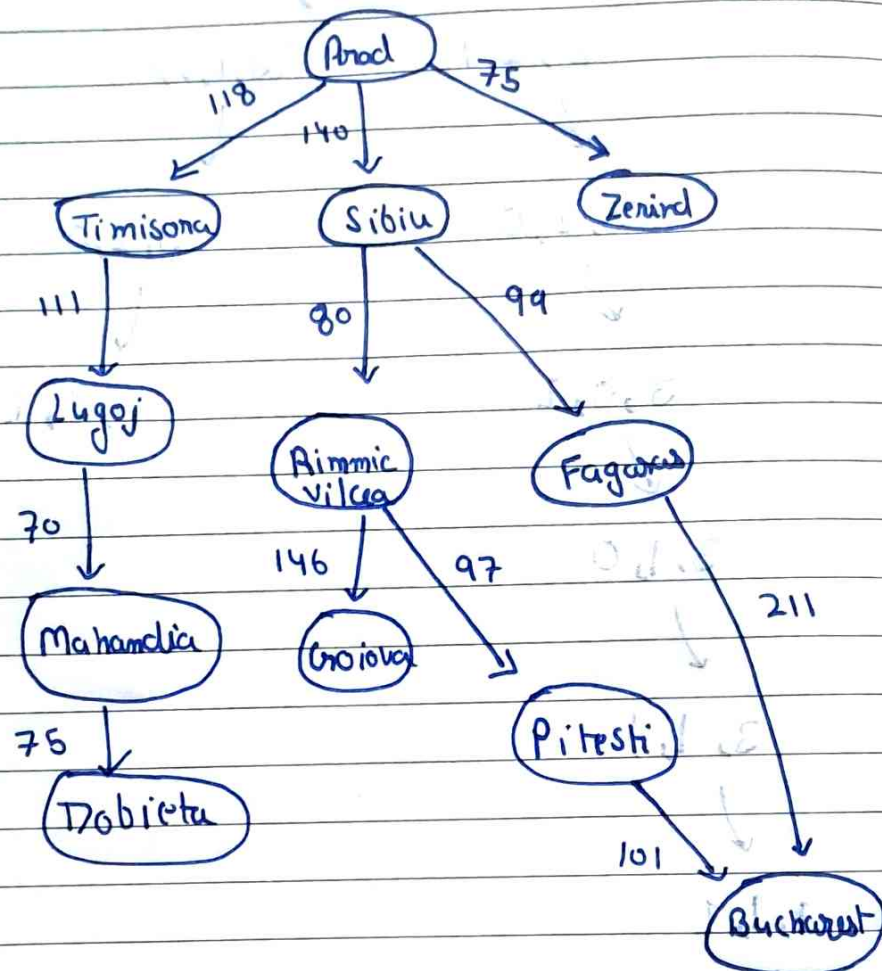 Arad
118
140
75
Timisora
Sibiu
Zerind
111
80
99
Lugoj
Rimmic
Vilcea
Fagaras
70
146
97
211
Mahandia
Croiova
Pitesti
75
Dobieta
101
Bucharest